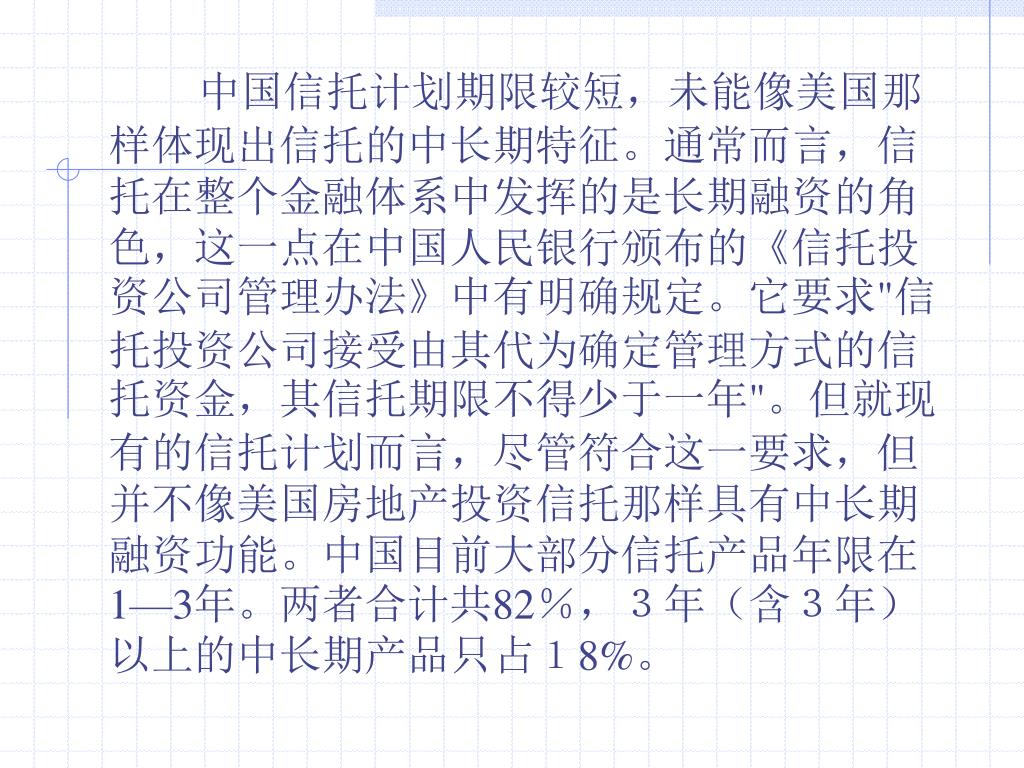 中国信托计划期限较短，未能像美国那
样体现出信托的中长期特征。通常而言，信
托在整个金融体系中发挥的是长期融资的角
色，这一点在中国人民银行颁布的《信托投
资公司管理办法》中有明确规定。它要求"信
托投资公司接受由其代为确定管理方式的信
托资金，其信托期限不得少于一年"。但就现
有的信托计划而言，尽管符合这一要求，但
并不像美国房地产投资信托那样具有中长期
融资功能。中国目前大部分信托产品年限在
1—3年。两者合计共82％，３年（含３年）
以上的中长期产品只占１8%。